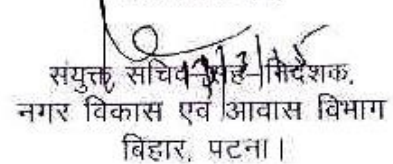 13/3/15
संयुक्त सचिव-सह-निदेशक,
नगर विकास एवं आवास विभाग
बिहार, पटना।